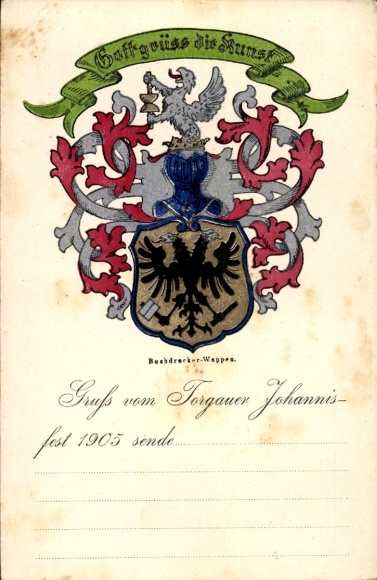 Gott grüss die Kunst
Buchdrucker-Wappen.
Gruß vom Torgauer Johannis-
fest 1905 sende